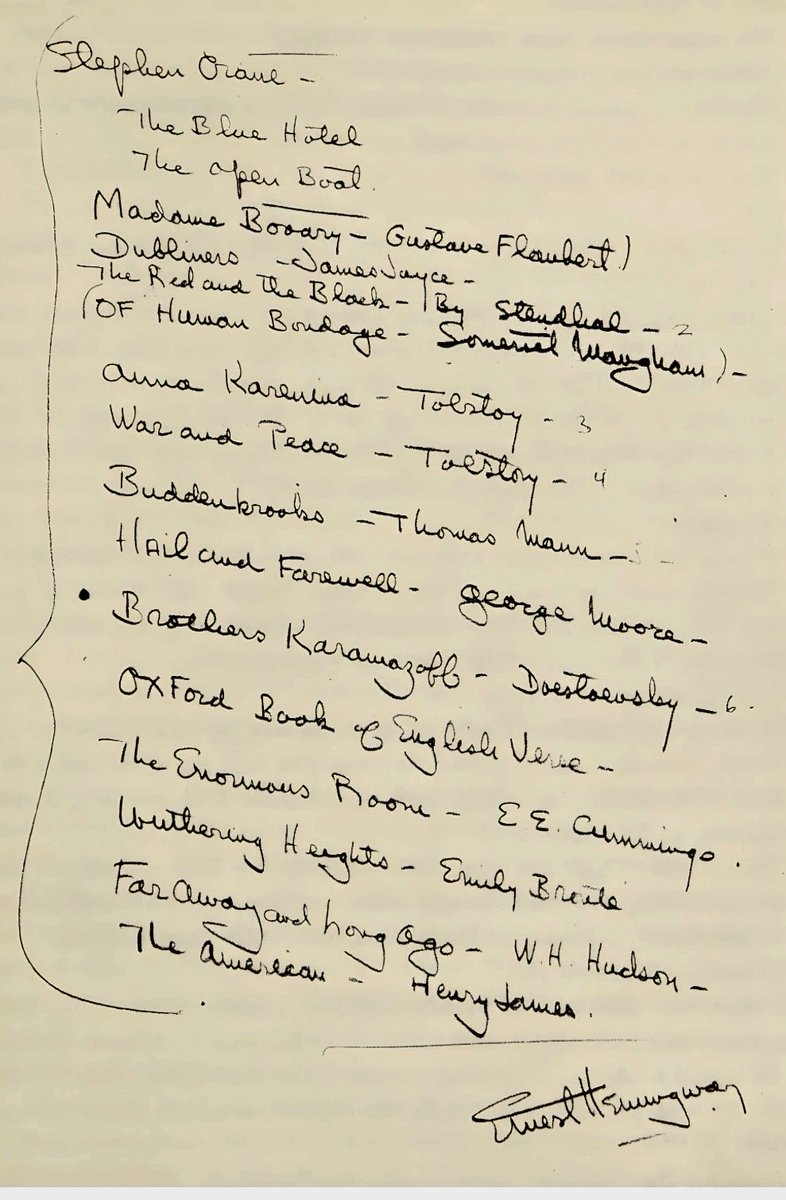 Stephen Crane -
The Blue Hotel
The Open Boat.
Madame Bovary - Gustave Flaubert)
Dubliners - James Joyce -
The Red and the Black - By Stendhal - 2
(Of Human Bondage - Somerset Maugham) -
Anna Karenina - Tolstoy - 3
War and Peace - Tolstoy - 4
Buddenbrooks - Thomas Mann - 5 -
Hail and Farewell - George Moore -
Brothers Karamazoff - Doestoevsky - 6.
Oxford Book of English Verse -
The Enormous Room - E E. Cummings.
Wuthering Heights - Emily Bronte
Far Away and Long Ago - W.H. Hudson -
The American - Henry James.
Ernest Hemingway